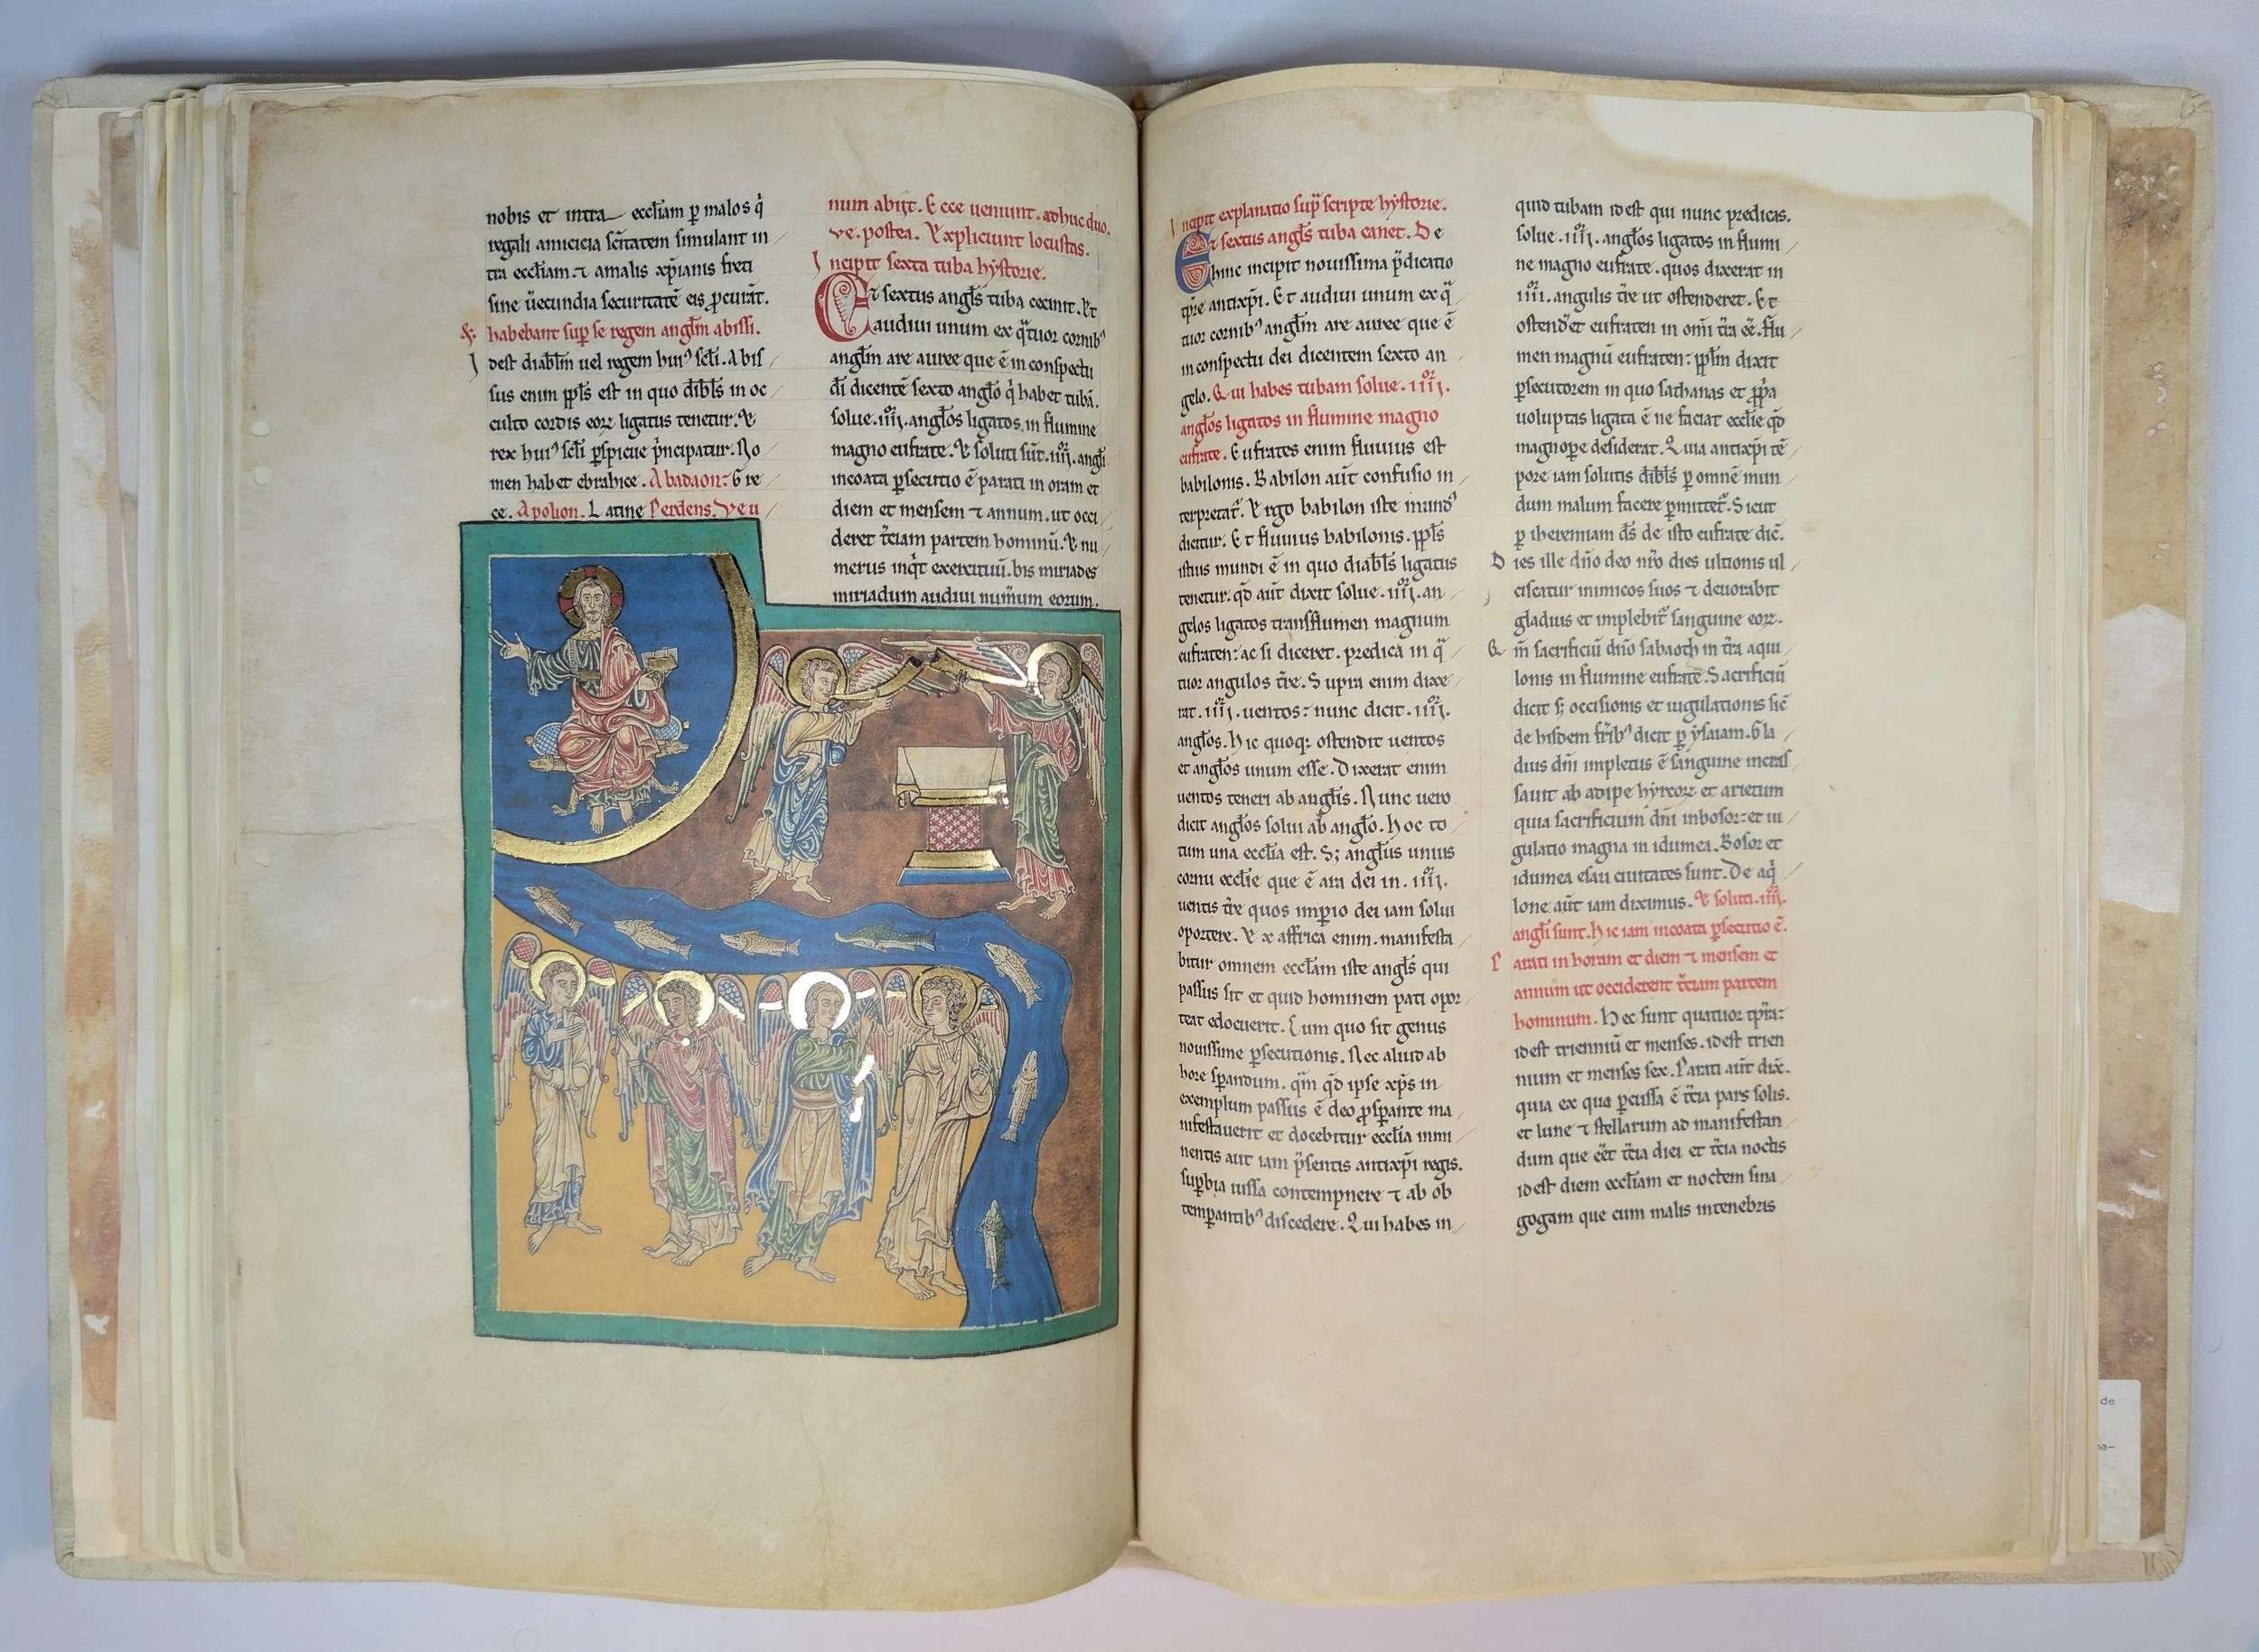 nobis et intra ecclīam p̱ malos q̇
regali amicicia sc̄itatem simulant in
tra ecclīam. ⁊ amalis xp̄ianis freti
sine ūecundia securitatē eis ꝓcurāt.
& habebant suꝑ se regem angl̄m abissi.
Idest diabl̄m uel regem hui᾽ scl̄i. Abis
sus enim ppl̄s est in quo dībl̄s in oc
culto cordis eoꝝ ligatus tenetur. Et
rex hui᾽ scl̄i ꝑspicue p̄ncipatur. No
men habet ebraice. Abadaon: Gre
ce. Apolion. Latine Perdens. Ve u
num abijt. Ecce ueniunt. adhuc duo.
ve. postea. Expliciunt locustas.
Incipit sexta tuba hystorie.
Et sextus angl̄s tuba cecinit. Et
audiui unum ex q̄tuor cornib᾽
angl̄m are auree que ē in conspectu
dī dicentē sexto angl̄o q̇ habet tubā.
solue. iiijor. angl̄os ligatos in flumine
magno eufrate. Et soluti sūt. iiijor. angl̄i
incoata ꝑsecutio ē parati in oram et
diem et mensem ⁊ annum. ut occi
deret t̄ciam partem hominū. Et nu
merus inq̇t exercituū. bis miriades
miriadum audiui num̄um eorum.
Incipit explanatio sup̄ scripte hystorie.
Et sextus angl̄s tuba canet. De
hinc incipit nouissima p̄dicatio
tp̄re antixp̄i. Et audiui unum ex q̄
tuor cornib᾽ angl̄m are auree que ē
in conspectu dei dicentem sexto an
gelo. Qui habes tubam solue. iiijor.
angl̄os ligatos in flumine magno
eufrate. Eufrates enim fluuius est
babilonis. Babilon aūt confusio in
terpretat᾽. Ergo babilon iste mund᾽
dicitur. Et fluuius babilonis. ppl̄s
istius mundi ē in quo diabl̄s ligatus
tenetur. qd̄ aūt dixit solue. iiijor. an
gelos ligatos transflumen magnum
eufraten: ac si diceret. predica in q̄
tuor angulos t̄re. Supra enim dixe
rat. iiijor. uentos: nunc dicit. iiijor.
angl̄os. Hic quoqꝫ ostendit uentos
et angl̄os unum esse. Dixerat enim
uentos teneri ab angl̄is. Nunc uero
dicit angl̄os solui ab angl̄o. Hoc to
tum una eccl̄ia est. S; angl̄us unius
cornu eccl̄ie que ē ara dei in. iiijor.
uentis t̄re quos imꝑio dei iam solui
oportere. Ex affrica enim. manifesta
bitur omnem eccl̄am iste angl̄s qui
passus sit et quid hominem pati opor
teat edocuerit. Cum quo sit genus
nouissime ꝑsecutionis. Nec aliud ab
hore sꝑandum. qm̄ qd̄ ipse xp̄s in
exemplum passus ē deo ꝓsꝑante ma
nifestauerit et docebitur eccl̄ia immi
nentis aut iam p̄sentis antixp̄i regis.
suꝑbia iussa contempnere ⁊ ab ob
temꝑantib᾽ discedere. Qui habes in
quid tubam idest qui nunc predicas.
solue. iiijor. angl̄os ligatos in flumi
ne magno eufrate. quos dixerat in
iiijor. angulis t̄re ut ostenderet. Et
ostend̄et eufraten in om̄i t̄ra eē. flu
men magnū eufraten: ppl̄m dixit
ꝑsecutorem in quo sathanas et pp̄a
uoluptas ligata ē ne faciat eccl̄ie qd̄
magnoꝑe desiderat. Quia antixp̄i tē
pore iam solutis dībl̄s ꝑ omnē mun
dum malum facere ꝑmittet᾽. Sicut
ꝑ iheremiam d̄s de isto eufrate dic̄.
Dies ille dn̄o deo nr̄o dies ultionis ul
ciscatur inimicos suos ⁊ deuorabit
gladius et implebit᾽ sanguine eoꝝ.
Qm̄ sacrificiū dn̄o sabaoth in t̄ra aqui
lonis in flumine eufrate. Sacrificiū
dicit s; occisionis et iugulationis sic̄
de hisdem fr̄ib᾽ dicit ꝑ ysaiam. Gla
dius dn̄i impletus ē sanguine incras
sauit ab adipe hyrcoꝝ et arietum
quia sacrificium dn̄i inbosor: et iu
gulatio magna in idumea. Bosor et
idumea esau ciuitates sunt. De aq̇
lone aūt iam diximus. Et soluti. iiijor.
angl̄i sunt. Hic iam incoata ꝑsecutio ē.
Parati in horam et diem ⁊ mensem et
annum ut occiderent t̄ciam partem
hominum. Hec sunt quatuor tp̄ra:
idest trienniū et menses. idest trien
nium et menses sex. Parati aūt dix̄.
quia ex qua ꝑcussa ē t̄cia pars solis.
et lune ⁊ stellarum ad manifestan
dum que eēt t̄cia diei et t̄cia noctis
idest diem eccl̄iam et noctem sina
gogam que cum malis intenebris
de